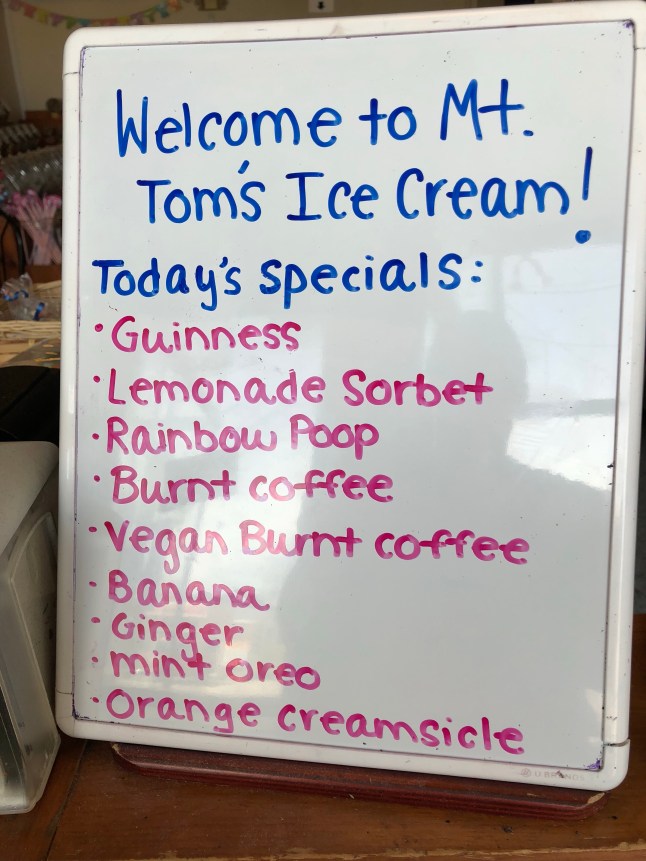 Welcome to Mt.
Tom's Ice Cream!
Today's specials:
• Guinness
• Lemonade Sorbet
• Rainbow Poop
• Burnt coffee
• Vegan Burnt coffee
• Banana
• Ginger
• mint oreo
• Orange creamsicle